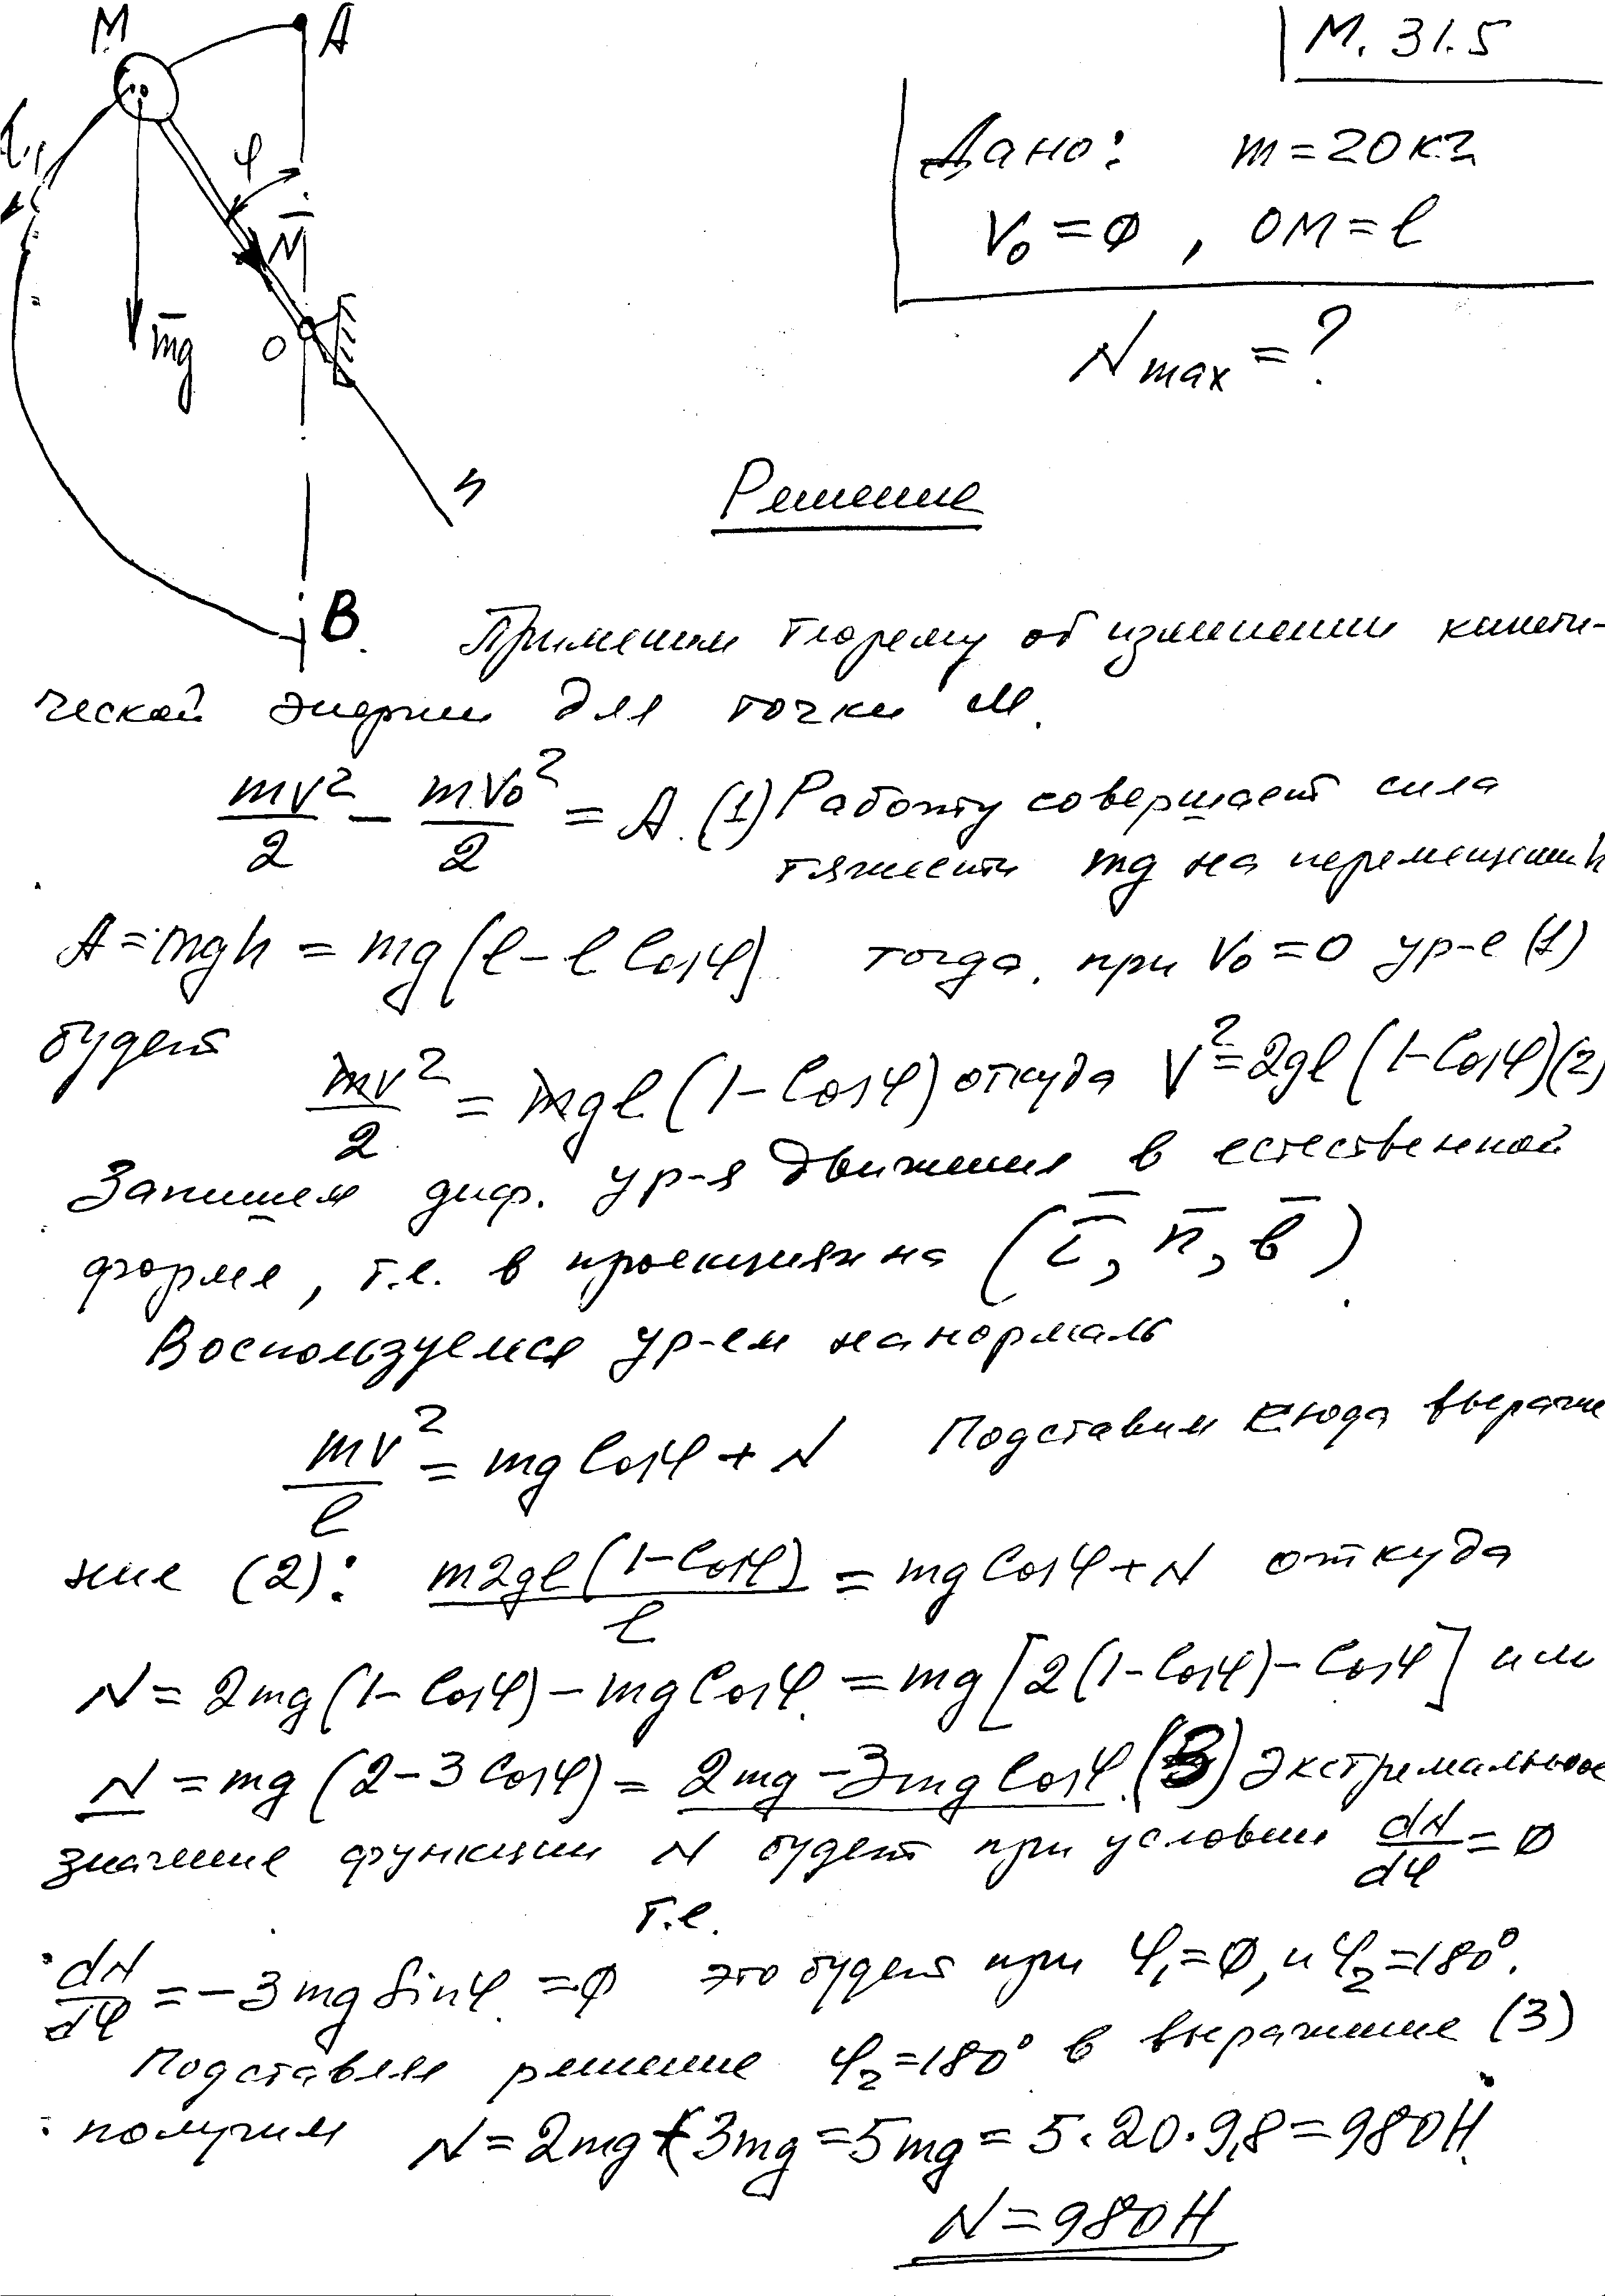 M A M. 31.5
φ
Дано: m = 20 кг
N̄
V₀ = 0, OM = l
m̄g O
N max = ?
n
Решение
B. Применим теорему об изменении кинети-
ческой энергии для точки М.
mv²/2 - mV₀²/2 = A. (1) Работу совершает сила
тяжести mg на перемещении h
A = mgh = mg(l - l Cosφ) тогда, при V₀ = 0 ур-е (1)
будет
mv²/2 = mgl(1 - Cosφ) откуда V² = 2gl(1 - Cosφ) (2)
Запишем диф. ур-я движения в естественной
форме, т.е. в проекциях на (τ̄, n̄, b̄).
Воспользуемся ур-ем на нормаль
mv²/l = mg Cosφ + N Подставим сюда выраже
ние (2): m2gl(1 - Cosφ)/l = mg Cosφ + N откуда
N = 2mg(1 - Cosφ) - mg Cosφ = mg[2(1 - Cosφ) - Cosφ] или
N = mg(2 - 3 Cosφ) = 2mg - 3mg Cosφ. (3) Экстремальное
значение функции N будет при условии dN/dφ = 0
т.е.
dN/dφ = -3mg Sinφ = 0 это будет при φ₁ = 0, и φ₂ = 180°.
Подставляя решение φ₂ = 180° в выражение (3)
получим N = 2mg + 3mg = 5mg = 5·20·9,8 = 980Н.
N = 980Н